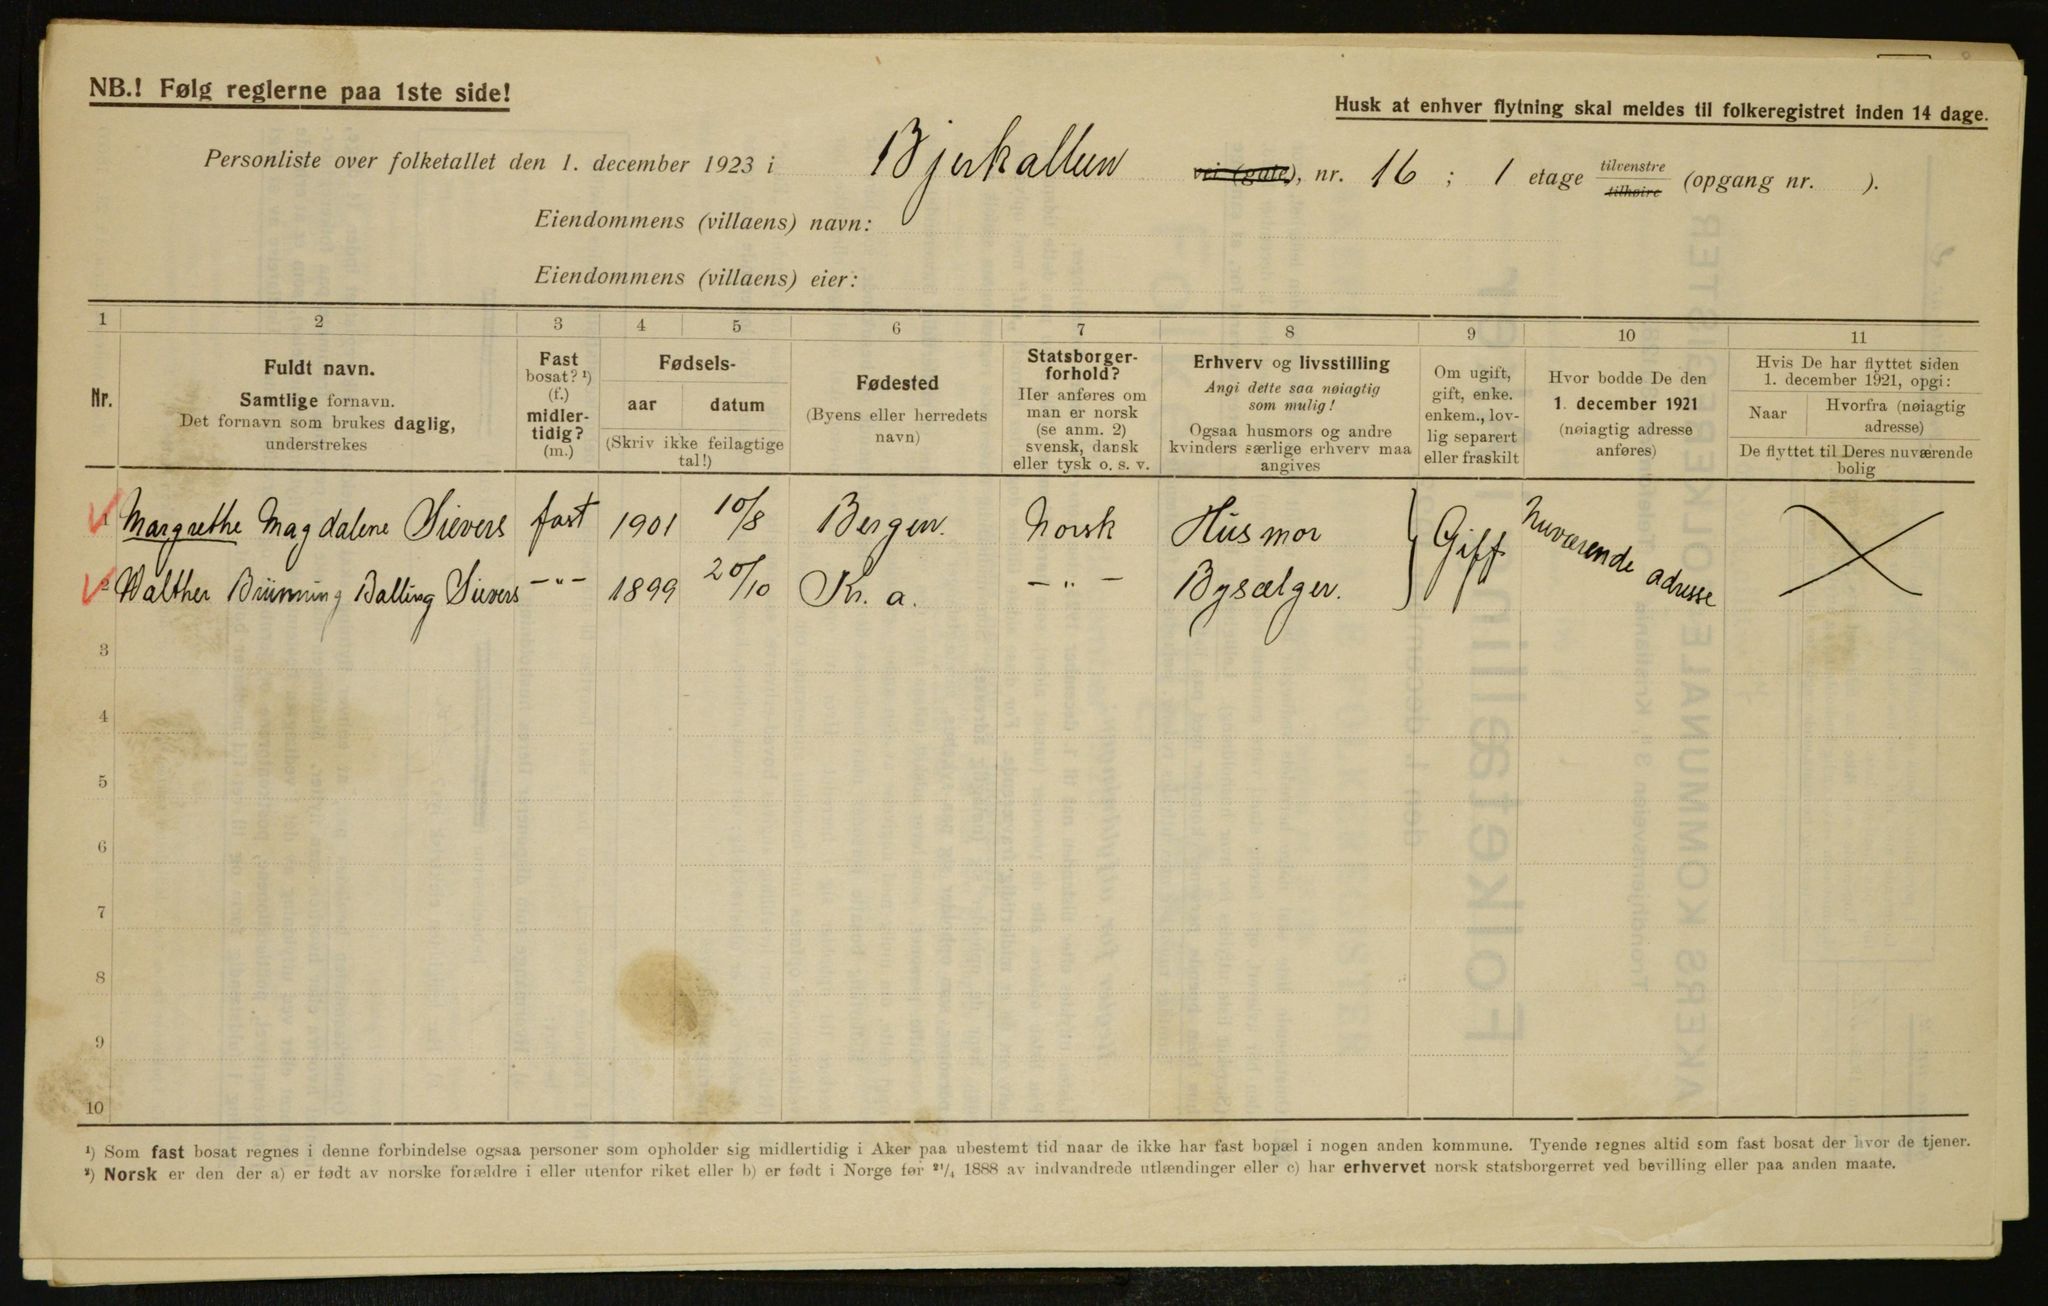 NB.! Følg reglerne paa 1ste side!
Husk at enhver flytning skal meldes til folkeregistret inden 14 dage.
Personliste over folketallet den 1. december 1923 i Bjerkalleen vei (gate), nr. 16 ; 1 etage tilvenstre tilhøire (opgang nr. ).
Eiendommens (villaens) navn:
Eiendommens (villaens) eier:
1 2 3 4 5 6 7 8 9 10 11
Nr.
Fuldt navn.
Samtlige fornavn.
Det fornavn som brukes daglig,
understrekes
Fast
bosat? ¹)
(f.)
midler-
tidig?
(m.)
Fødsels-
aar datum
(Skriv ikke feilagtige
tal!)
Fødested
(Byens eller herredets
navn)
Statsborger-
forhold?
Her anføres om
man er norsk
(se anm. 2)
svensk, dansk
eller tysk o. s. v.
Erhverv og livsstilling
Angi dette saa nøiagtig
som mulig!
Ogsaa husmors og andre
kvinders særlige erhverv maa
angives
Om ugift,
gift, enke.
enkem., lov-
lig separert
eller fraskilt
Hvor bodde De den
1. december 1921
(nøiagtig adresse
anføres)
Hvis De har flyttet siden
1. december 1921, opgi:
Naar
Hvorfra (nøiagtig
adresse)
De flyttet til Deres nuværende
bolig
1 Margrethe Magdalene Sievers fast 1901 10/8 Bergen. Norsk Husmor Gift Nuværende adresse
2 Walther Brünning Balling Sievers -"- 1899 20/10 Kr. a. -"- Bysælger.
3
4
5
6
7
8
9
10
¹) Som fast bosat regnes i denne forbindelse ogsaa personer som opholder sig midlertidig i Aker paa ubestemt tid naar de ikke har fast bopæl i nogen anden kommune. Tyende regnes altid som fast bosat der hvor de tjener.
²) Norsk er den der a) er født av norske forældre i eller utenfor riket eller b) er født i Norge før ²¹/₄ 1888 av indvandrede utlændinger eller c) har erhvervet norsk statsborgerret ved bevilling eller paa anden maate.